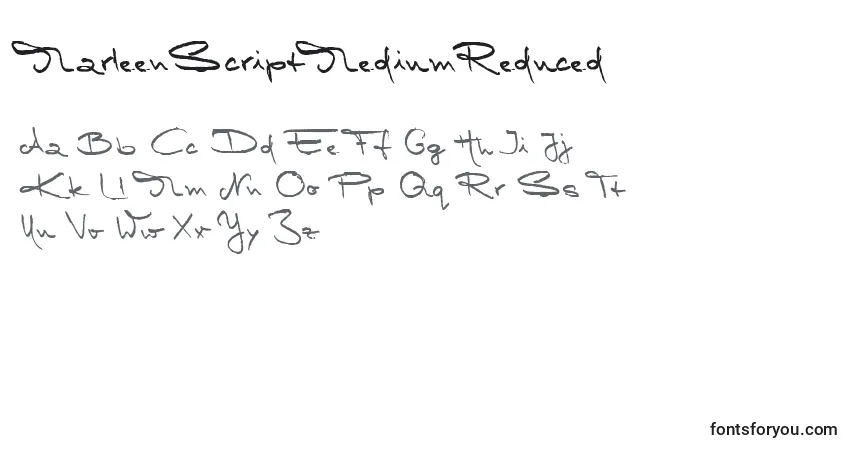 MarleenScriptMediumReduced
Aa Bb Cc Dd Ee Ff Gg Hh Ii Jj
Kk Ll Mm Nn Oo Pp Qq Rr Ss Tt
Uu Vv Ww Xx Yy Zz
fontsforyou.com